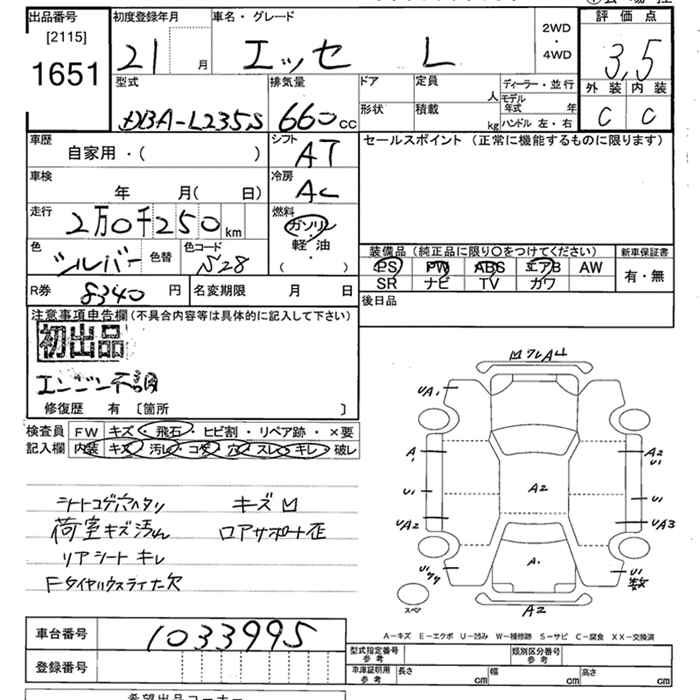 出品番号 初度登録年月 車名・グレード 2WD ・ 4WD 評価点
[2115] 1651
21 月 エッセ L 3,5
型式 排気量 ドア 定員 人 ディーラー・並行 外装 内装
形状 積載 kg モデル年式 年 ハンドル 左・右
DBA-L235S 660 cc C C
車歴 自家用・( ) シフト AT セールスポイント (正常に機能するものに限ります)
車検 年 月( 日) 冷房 AC
走行 2万0千250 km 燃料 ガソリン 軽・油 ( )
色 シルバー 色替 色コード S28
装備品 (純正品に限り○をつけてください) 新車保証書
PS PW ABS エアB AW 有・無
SR ナビ TV ガワ
R券 8340 円 名変期限 月 日 後日品
注意事項申告欄(不具合内容等は具体的に記入して下さい)
初出品
エンジン不調
修復歴 有 [箇所 ]
検査員 FW キズ・飛石・ヒビ割・リペア跡・×要
記入欄 内装 キズ 汚れ・コゲ 穴・スレ・キレ・破レ
シートコゲ穴ヘタリ キズ凹
荷室キズ汚れ ロアサポート歪
リアシートキレ
Fタイヤハウスライナー欠
凹フレA凹
UA1
A1 A2 U1
U1 A2 U1
UA2 UA3
A1
U1 U1
スペア A2
A-キズ E-エクボ U-凹み W-補修跡 S-サビ C-腐食 XX-交換済
車台番号 1033995
登録番号
型式指定番号 参考 類別区分番号 参考
車庫証明用 参考 長さ cm 幅 cm 高さ cm
希望出品コーナー